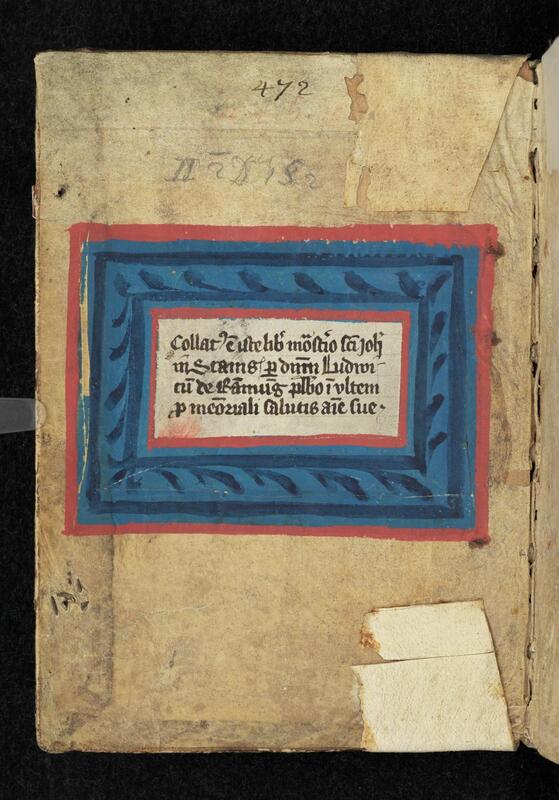 472
II 2
Collatꝰ ē iste lib̾ mōst̾io sc̄i Joh̄
in Stams ꝑ dn̄m Ludwi
cū de Rāmūg pl̄bo ī vltem
ꝓ memōriali salutis aīe sue.